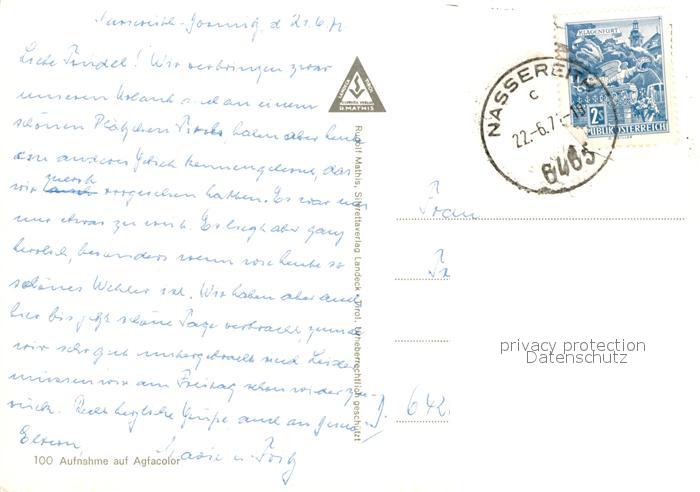 Nassereith-Gourmig, d 21.6.71
Liebe Trudel! Wir verbringen zwar
unseren Urlaub an einem
schönen Plätzchen Tirols, haben aber heute
ein anderes kennengelernt, das
wir zuerst vorgesehen hatten. Es war uns
nur etwas zu weit. Es liegt aber ganz
herrlich, besonders wenn wie heute so
schönes Wetter ist. Wir haben aber auch
hier bis jetzt schöne Tage verbracht, zumal
wir sehr gut untergebracht sind. Leider
müssen wir am Freitag schon wieder zu-
rück. Recht herzliche Grüße auch an Deine
Eltern,
100 Aufnahme auf Agfacolor
LANDECK TIROL
R. MATHIS
Rudolf Mathis, Silvrettaverlag Landeck • Tirol. Urheberrechtlich geschützt
KLAGENFURT
2S
REPUBLIK ÖSTERREICH
NASSEREITH
c
22.-6.71-18
6465
Frau
642
privacy protection
Datenschutz